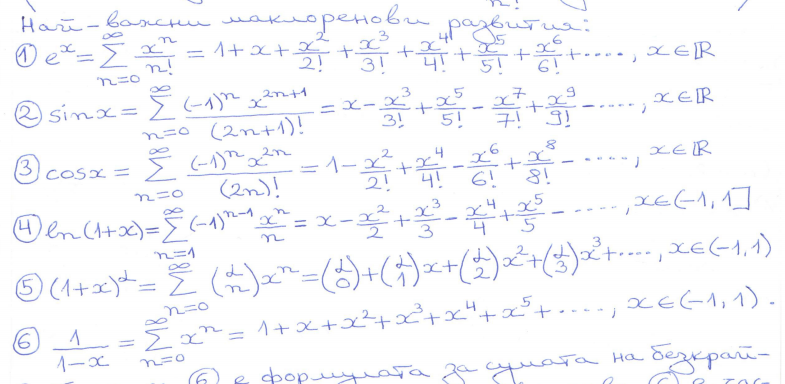 Най-важни маклоренови развития:
① e^x = ∑_{n=0}^{∞} x^n/n! = 1 + x + x^2/2! + x^3/3! + x^4/4! + x^5/5! + x^6/6! + ...., x ∈ ℝ
② sinx = ∑_{n=0}^{∞} (-1)^n x^{2n+1}/(2n+1)! = x - x^3/3! + x^5/5! - x^7/7! + x^9/9! - ...., x ∈ ℝ
③ cosx = ∑_{n=0}^{∞} (-1)^n x^{2n}/(2n)! = 1 - x^2/2! + x^4/4! - x^6/6! + x^8/8! - ...., x ∈ ℝ
④ ln(1+x) = ∑_{n=1}^{∞} (-1)^{n-1} x^n/n = x - x^2/2 + x^3/3 - x^4/4 + x^5/5 - ...., x ∈ (-1, 1]
⑤ (1+x)^α = ∑_{n=0}^{∞} (α n) x^n = (α 0) + (α 1)x + (α 2)x^2 + (α 3)x^3 + ...., x ∈ (-1, 1)
⑥ 1/(1-x) = ∑_{n=0}^{∞} x^n = 1 + x + x^2 + x^3 + x^4 + x^5 + ...., x ∈ (-1, 1).
⑥ е формулата за сумата на безкрай-